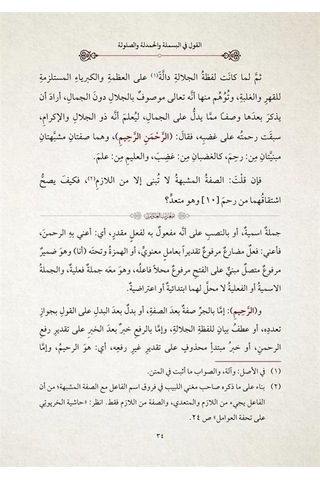 القول في البسملة والحمدلة والصلوثة
ثمَّ لما كانَت لفظةُ الجلالةِ دالَّةً(١) على العظمةِ والكبرياءِ المستلزمةِ
للقهرِ والغلبةِ، وتُوُهِّم منها أنَّه تعالى موصوفٌ بالجلالِ دونَ الجمالِ، أرادَ أن
يذكرَ بعدَها وصفَ ممَّا يدلُّ على الجمالِ، ليُعلَمَ أنَّه ذو الجلالِ والإكرامِ،
سبقَت رحمتُه على غضبِه، فقالَ: (الرَّحْمَنِ الرَّحِيمِ)، وهما صفتانِ مشبَّهتانِ
مبنيَّتانِ مِن: رحِمَ، كالغضبانِ مِن: غضِبَ، والعليمِ مِن: علمَ.
فإن قلتَ: الصفةُ المشبهةُ لا تُبنى إلا من اللازمِ(٢)، فكيفَ يصحُّ
اشتقاقُهما من رحمَ [١٠] وهو متعدٍّ؟
جملةً اسميةً، أو بالنصبِ على أنَّه مفعولٌ به لفعلٍ مقدرٍ، أي: أعني بهِ الرحمنَ،
فأعني: فعلٌ مضارعٌ مرفوعٌ تقديراً بعاملٍ معنويٍّ، أو الهمزةُ وتحتَه (أنا) وهوَ ضميرٌ
مرفوعٌ متصلٌ مبنيٌّ على الفتحِ مرفوعٌ محلاً فاعلُه، وهوَ معَه جملةٌ فعليةٌ، والجملةُ
الاسميةُ أو الفعليةُ لا محلَّ لهما ابتدائيَّةٌ أو اعتراضيةٌ.
و(الرَّحِيمِ): إمَّا بالجرِّ صفةٌ بعدَ الصفةِ، أو بدلٌ بعدَ البدلِ على القولِ بجوازِ
تعددِه، أو عطفُ بيانٍ للفظةِ الجلالةِ، وإمَّا بالرفعِ خبرٌ بعدَ الخبرِ على تقديرِ رفعِ
الرحمنِ، أو خبرُ مبتدأٍ محذوفٍ على تقديرِ غيرِ رفعِه، أي: هوَ الرحيمُ، وإمَّا
(١) في الأصل: وآلة، والصواب ما أثبت في المتن.
(٢) بناء على ما ذكره صاحب مغني اللبيب في فروق اسم الفاعل مع الصفة المشبهة؛ من أن
الفاعل يجيء من اللازم والمتعدي، والصفة من اللازم فقط. انظر: «حاشية الخربوتي
على تحفة العوامل» ص ٢٤.
٣٤